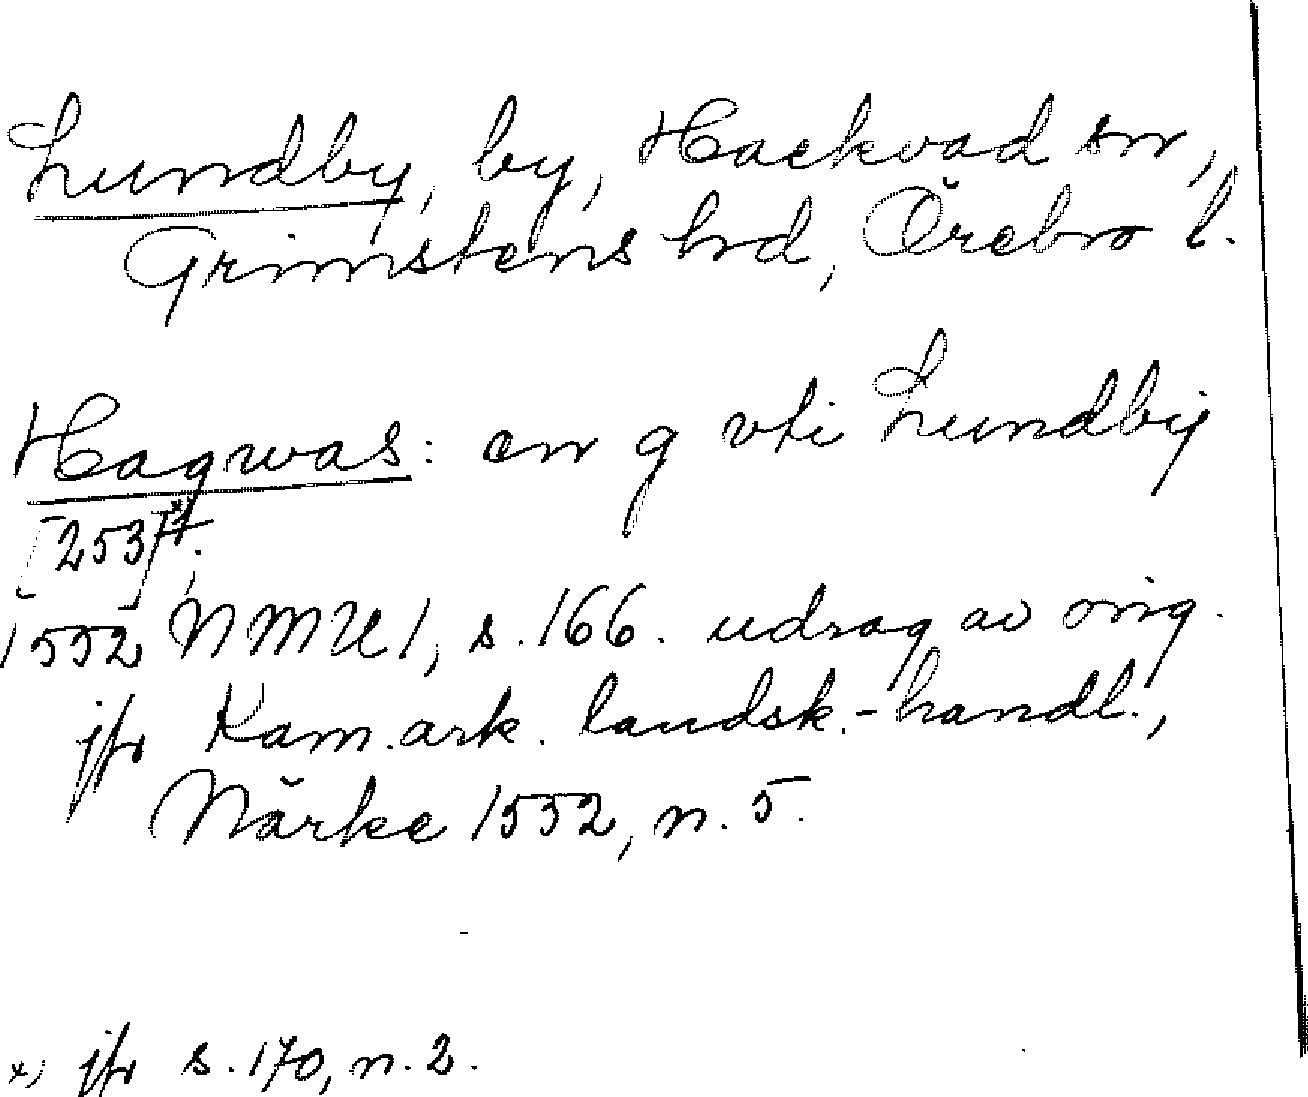 Lundby, by, Hackvad sn,
Grimstens hd, Örebro l.
Hagwas: en g vti Lundbij
[253]*);
1552 NMU 1, s. 166. udrag av orig.
jfr Kam. ark. landsk.-handl.,
Närke 1552, n. 5.
*) jfr s. 170, n. 2.